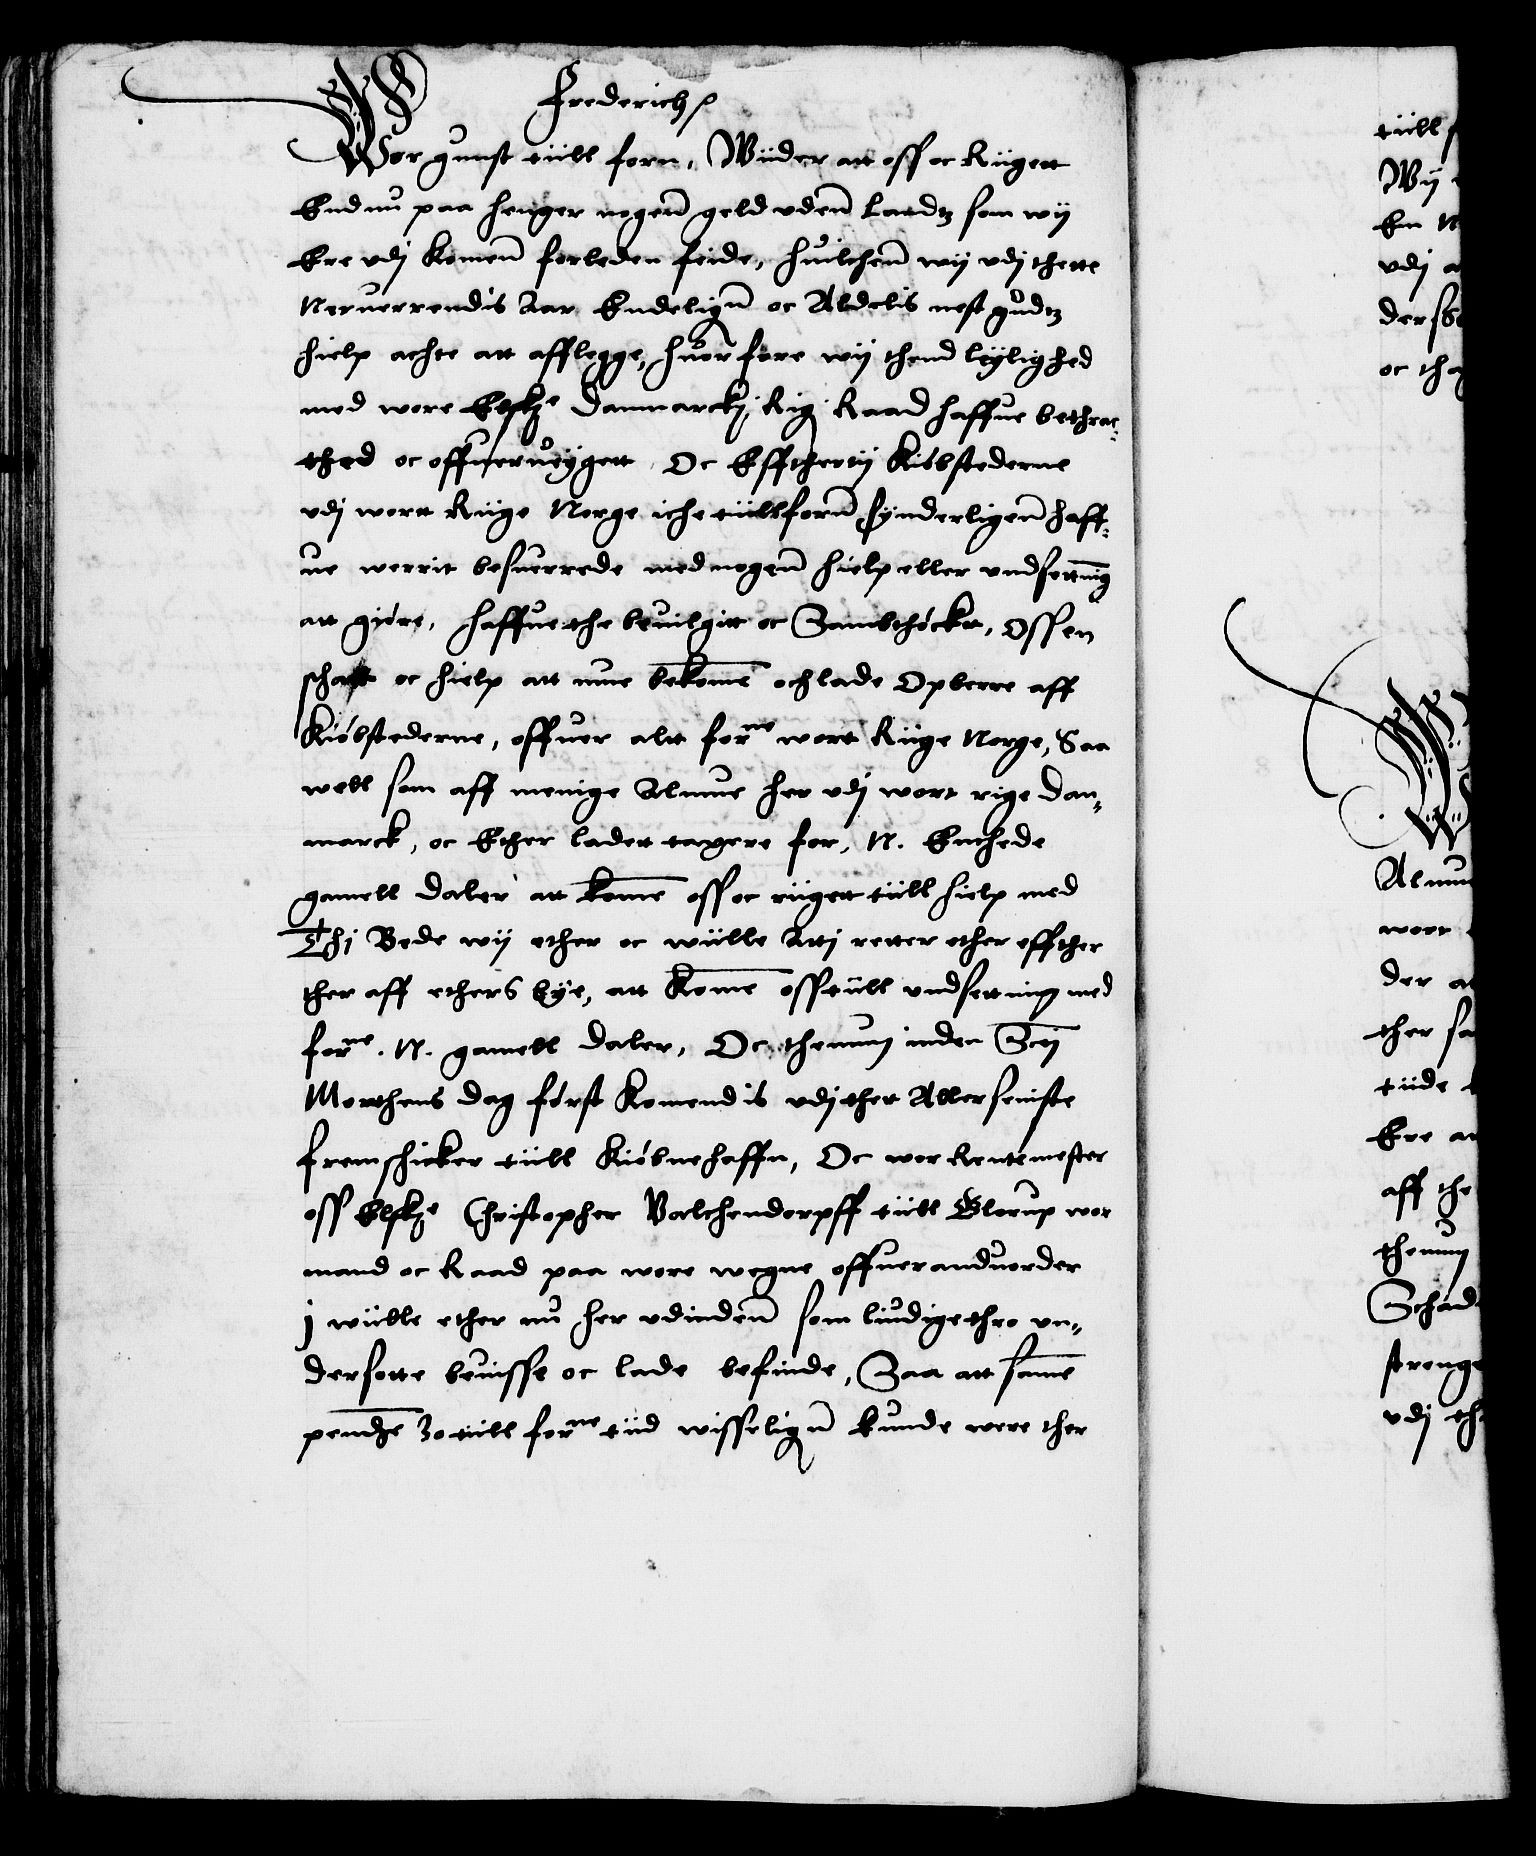 Frederich
Wor gunst tiill forn, Wiider att oss oc Riigett
End nu paa henger nogen̄ geld vden̄ Landtz som wij
Ere vdj komen̄ forleden feide, huilchen̄ wij vdj thette
Neruerrendis Aar Endelign̄ oc Aldelis nest gudtz
hielp achte att afflegge, huor fore wij thend leylighed
med wore Elskė Danmarckis Rigis Raad haffue bethrac-
thed oc offuerueygett, Oc Effthertij Kiøbstederne
vdj wortt Riige Norge iche tiillforn̄ synderligen̄ haff-
ue werrit besuerrede med nogen̄ hielp eller vndsettnīg
att giøre, haffue the beuilgitt oc Sambthøckt, Oss en
schatt oc hielp att mue bekome̅ och lade Opberre aff
Kiøbstederne, offuer altt forne wortt Riige Norge, Saa
well som aff menige Almue her vdj wort rige Dan-
marck, oc Ether ladett taxere for, N. Enchede
gamell daler att kome̅ oss oc riigett tiill hielp med
Thj Bede wij ether oc wiille Attj retter ether effther
ther aff ethers Bÿe, att Kome̅ oss tiill vndsettning med
forne. N. gamell daler, Oc thennum inden Sctj
Morthens dag først Komendis vdj thet Allerseniste
fremschicker tiill Kiøbnehaffn, Oc wor Rentemester
oss Elskė Christopher Valchendorpff tiill Glorup wor
mand oc Raad paa wore wegne offuerandtuorder
J wiille ether nu her vdinden̄ som liudige thro vn-
dersotte beuisse oc lade befinde, Saa att same̅
pendʒe ʒo tiill forne tiid wisselign̄ kunde were ther
tiill
Wij
vdj
oc
Almu
wort
der
ther
tiide
Ere
aff the
thenum
strenge
vdj